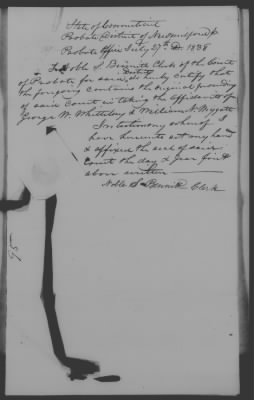 State of Connecticut
Probate District of New Milford ss
Probate Office July 27th AD. 1838
I Noble S Bennitt Clerk of the Court
of Probate for said District do hereby certify that
the foregoing contains the original proceeding
of said Court in taking the affidavits of
George W. Whittelsey & William N. Wygatt
In testimony whereof I
have hereunto set my hand
& affixed the seal of said
Court the day & year first
above written
Noble S Bennitt Clerk
95